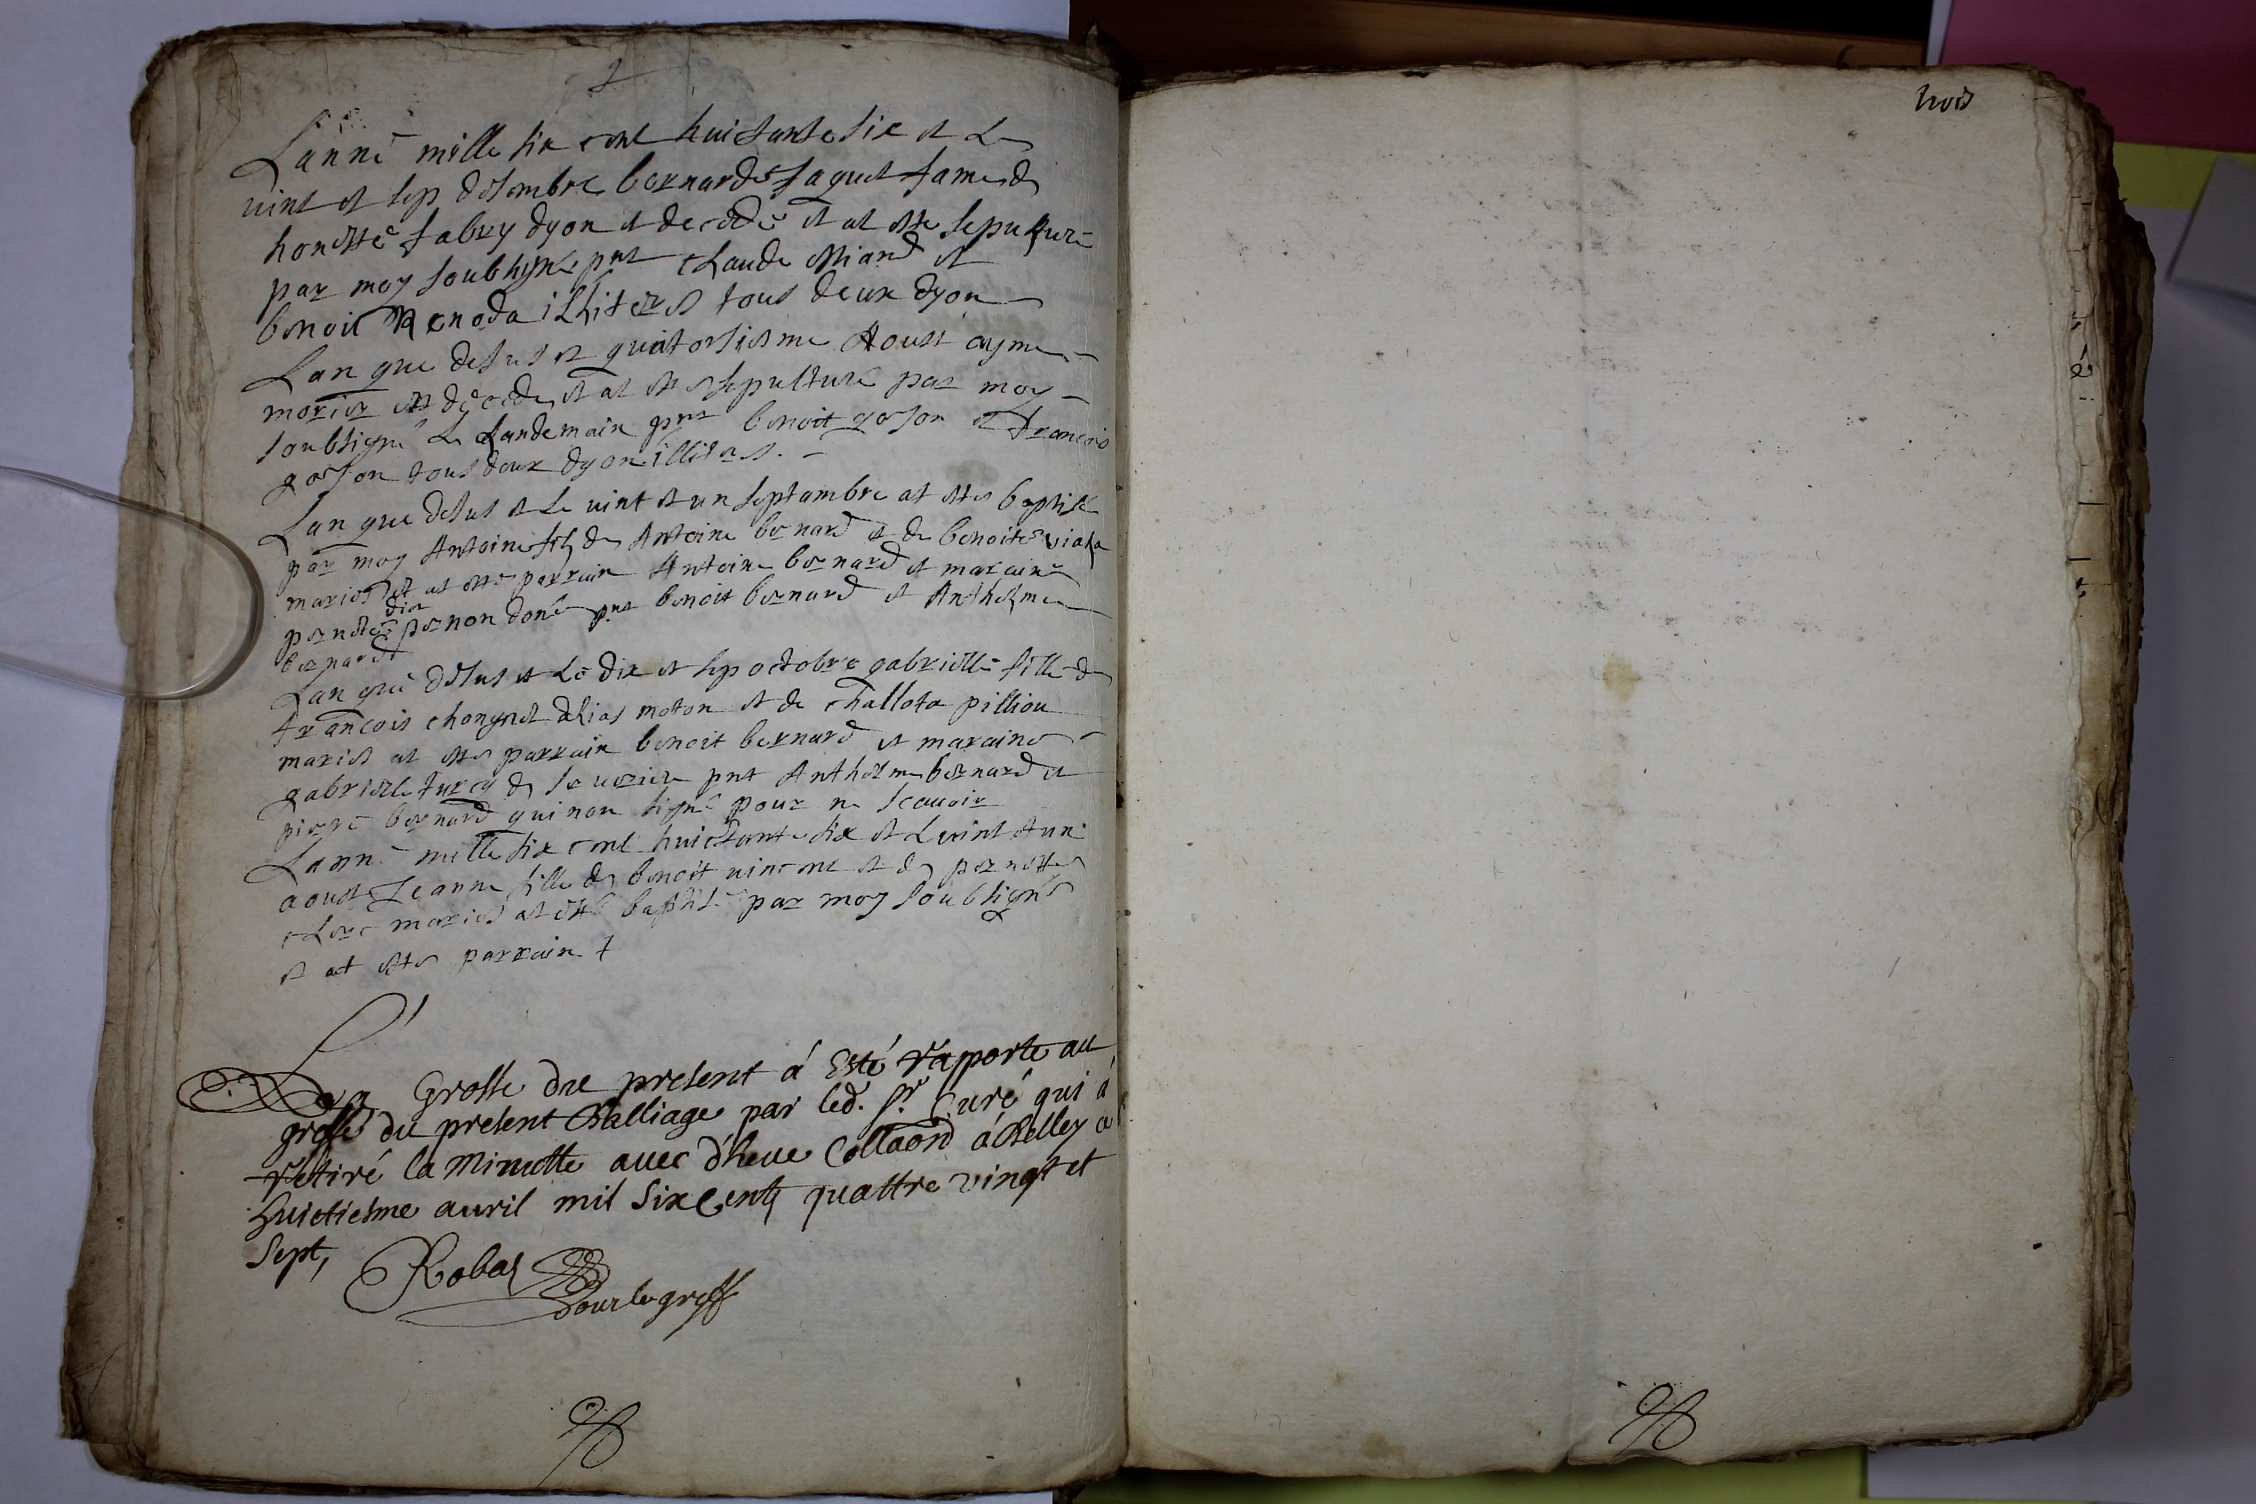 Lanné mille six cent huictante six et le
vint et sep desembre bernarde saquet fame de
honeste fabry dyon et decedé et at este sepulturé
par moy soubsigné pnt Claude Miand et
benoit Renoda illiteres tous deux dyon
Lan que desus et quatorsiesme Aoust ayme
morier est decede et at este sepulturé par moy
soubsigné le landemain pnt benoit goion et francois
goion tous deux dyon illiteres.
Lan que desus et le vint et un septambre at este baptisé
par moy Antoine fils de Antoine bernard et de benoite
mariés et at esté parrain Antoine bernard et maraine
pernete non doné pnt benoit bernard et Anthelme
bernard
Lan que desus et le dix et sep octobre gabrielle fille de
francois chongnet alias moton et de challota pilliou
mariés at este parrain benoit bernard et maraine
gabriele turcy de pnt Anthelme bernard et
pierre bernard qui non signé pour ne scauoir
Lanné mille six cent huictante six et le vint et un
aoust Jeanne fille de benoit vincent et de pernette
clerc mariés at esté baptisé par moy soubsigné
et at este parrain +
La Grosse du present á Esté raporte au
greffe du present Balliage par led. sr. Curé qui á
retiré la Minutte avec d'heue Collaon á Belley ce
huictiesme auril mil six Cents quattre vingt et
sept,
Robat
Pour le greff
trois